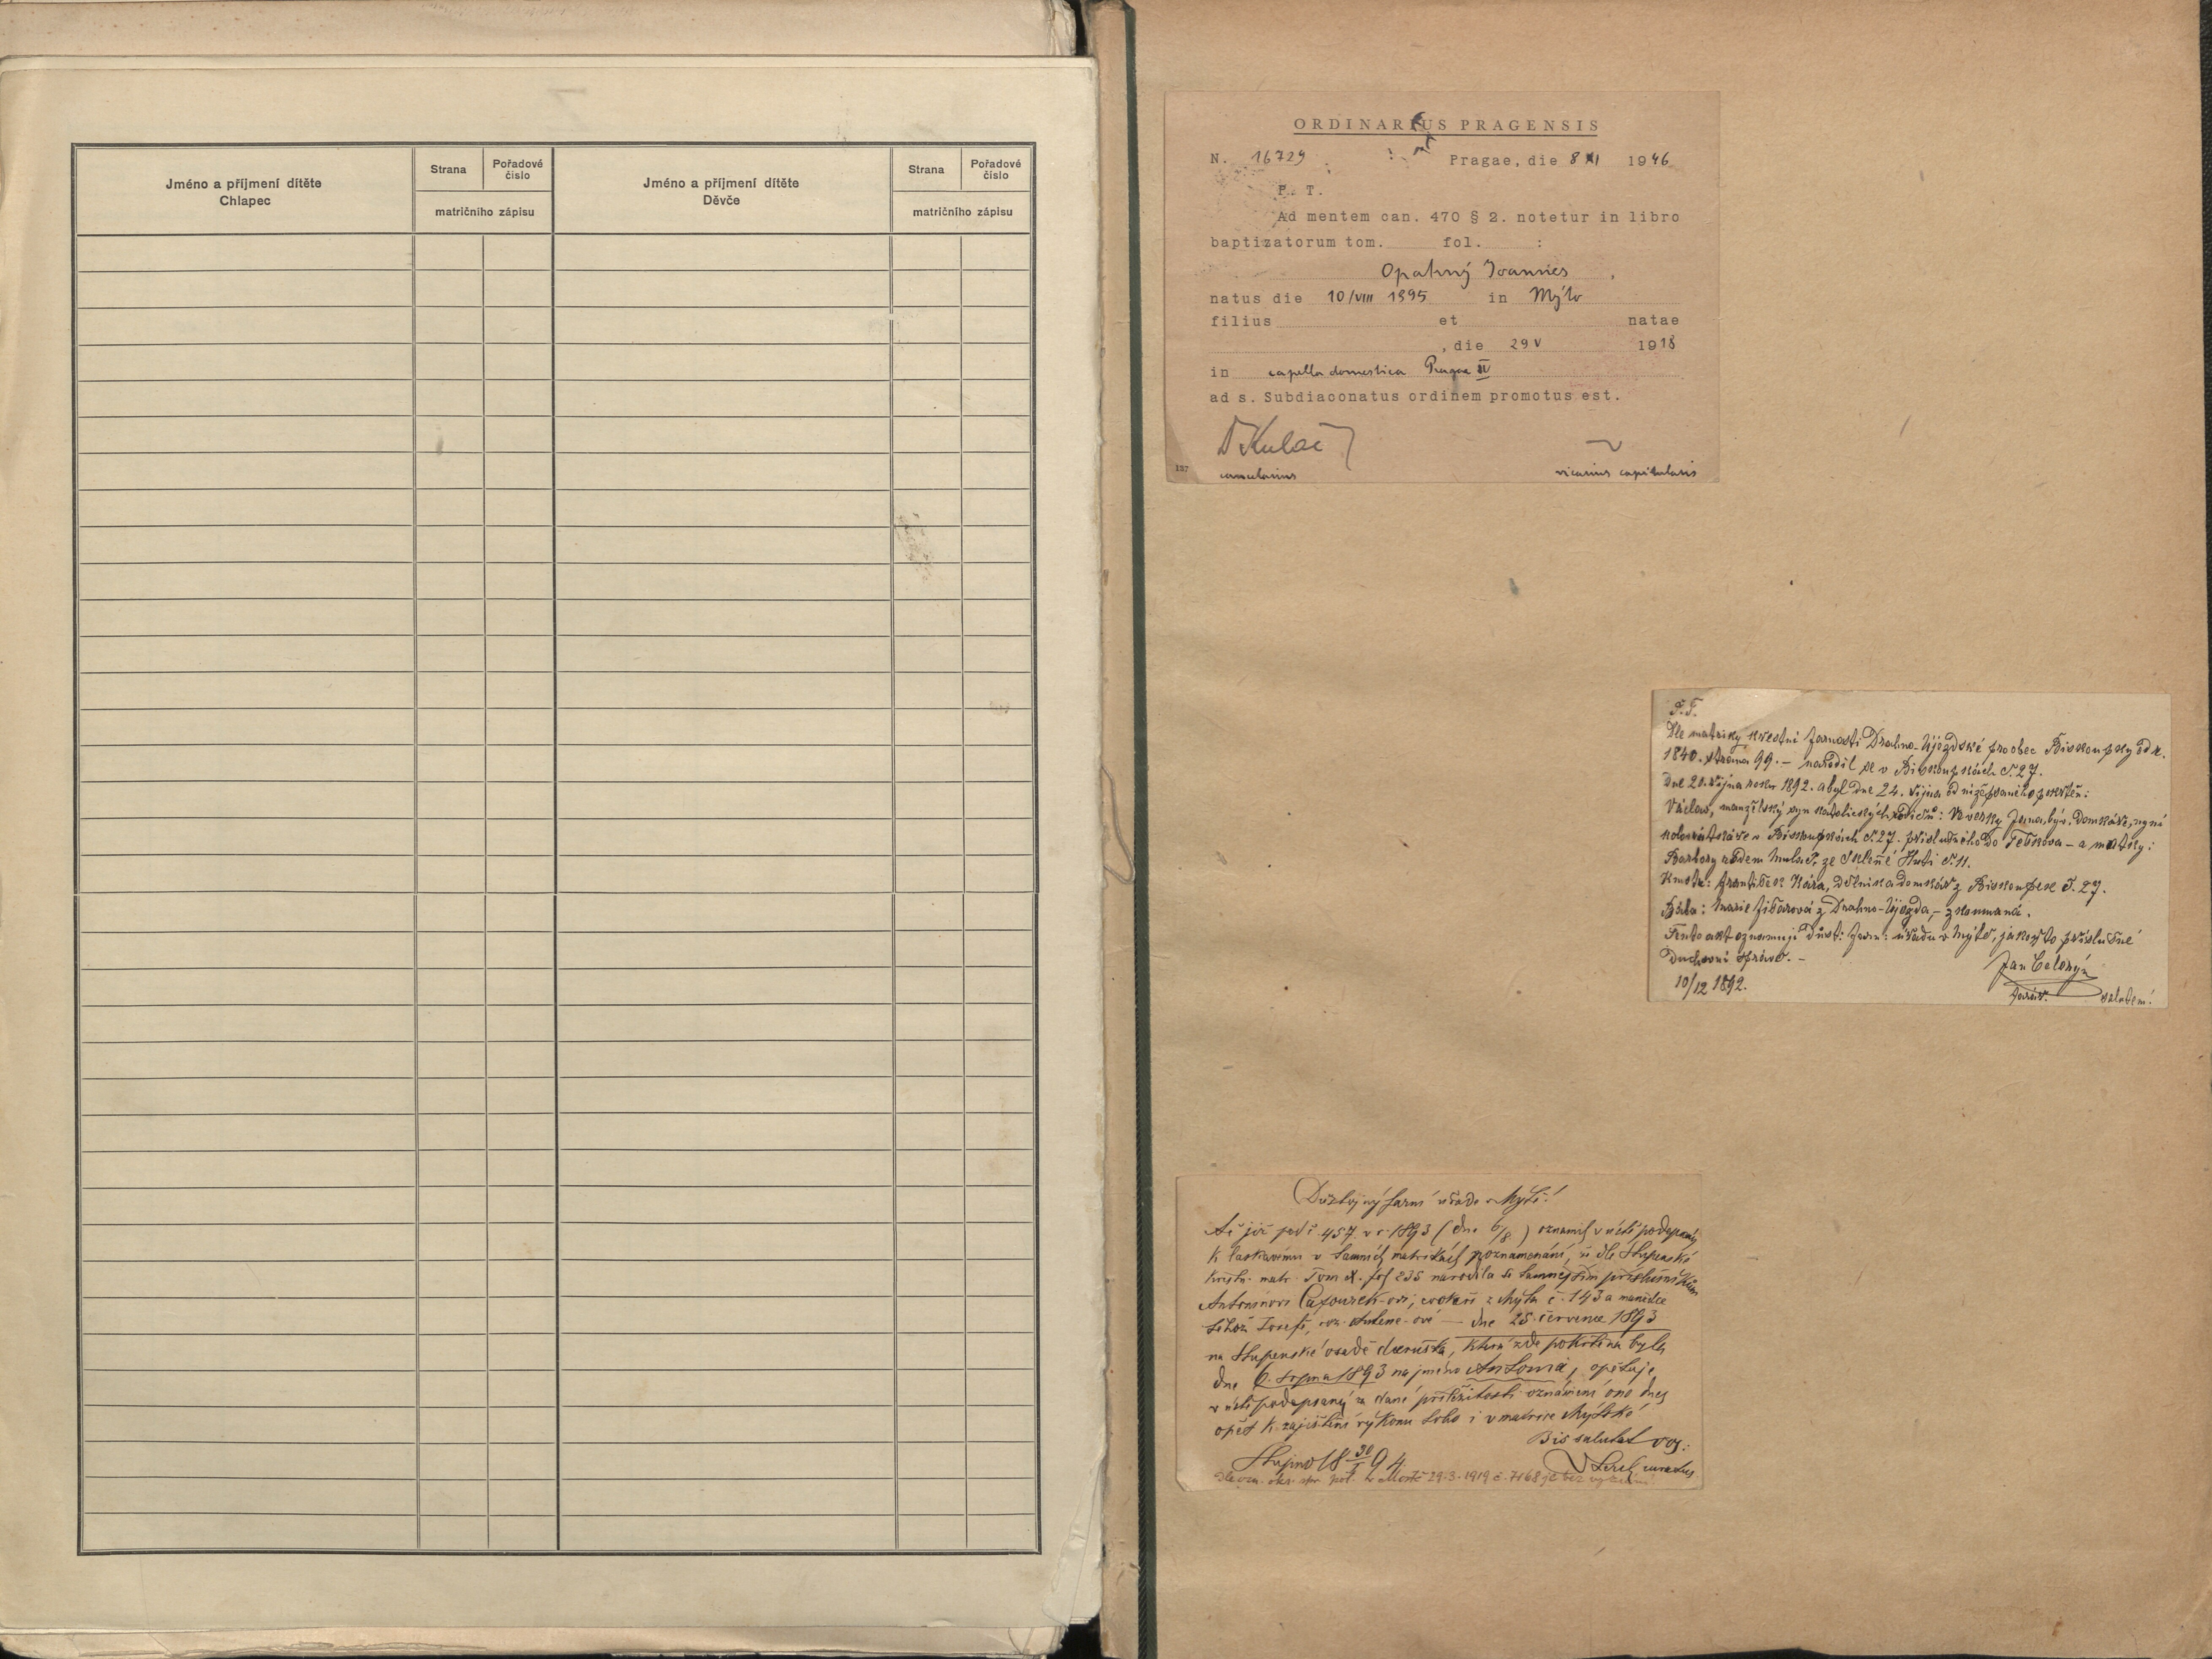 Jméno a příjmení dítěte
Chlapec
Strana
Pořadové
číslo
matričního zápisu
Jméno a příjmení dítěte
Děvče
Strana
Pořadové
číslo
matričního zápisu
ORDINARIUS PRAGENSIS
N. 16729 Pragae, die 8 XI 1946
P. T.
Ad mentem can. 470 § 2. notetur in libro
baptizatorum tom. fol. :
Opatrný Joannes ,
natus die 10/VIII 1895 in Mýto
filius et natae
, die 29 V 1918
in capella domestica Pragae IV
ad s. Subdiaconatus ordinem promotus est.
cancelarius vicarius capitularis
127
P.T.
Dle matriky křestní farnosti Drahno-Újezdské pro obec Biskoupky od r.
1840. strana 99. – narodil se v Biskoupkách č. 27.
Dne 20. října roku 1892. a byl dne 24. října od nížepsaného pokřtěn:
Václav, manželský syn katolických rodičů: Jana, býv. domkáře, nyní
v Biskoupkách č. 27. příslušného do Těškova – a matky:
Barbory rodem ze Sklené Huti č. 11.
Kmotr: František Kára, dělník a domkář z Biskoupek č. 27.
Bába: Marie z Drahno-Újezda, – zkoumaná.
Tento akt oznamuji důst: farn: úřadu v Mýtě, jakožto příslušné
duchovní správě. –
10/12 1892.
Jan
farář. salutem!
Důstojný farní úřade v Mýtě!
Ač již pod č. 457 v r. 1893 (dne 6/8) oznámil v úctě podepsaný
k laskavému v tamních matrikách poznamenání, že dle Stupenské
křestn. matr. Tom fol 235 narodila se tamnějším příslušníkům
Antonínovi z Mýta č. 143 a manželce
téhož Josefě, roz. – dne 25. července 1893
na Stupenské osadě dceruška, která zde pokřtěna byla
dne 6. srpna 1893 na jméno Antonie, opětuje
v úctě podepsaný za dané příležitosti oznámení ono dnes
opět k zajištění výkonu toho i v matrice Mýtské
Bis salutat
Stupno 18 30/I 94.
curatus.
29.3.1919 č. 7168 je bez vyznání.